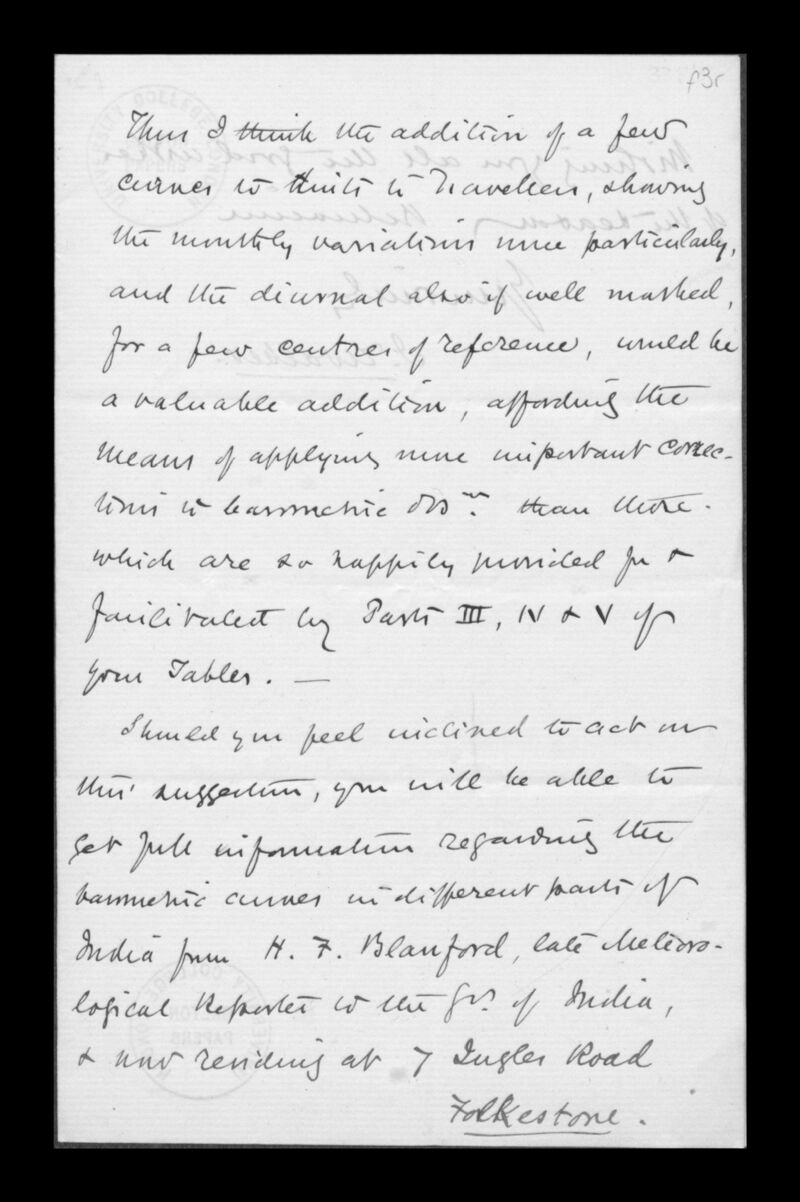 f3r
Thus I think the addition of a few
curves to Hints to Travellers, showing
the monthly variations more particularly,
and the diurnal also if well marked,
for a few centres of reference, would be
a valuable addition, affording the
means of applying more important correc-
tions to barometric obsns. than those
which are so happily provided for &
facilitated by Parts III, IV & V of
your Tables. —
Should you feel inclined to act on
this suggestion, you will be able to
get full information regarding the
barometric curves in different parts of
India from H. F. Blanford, late Meteoro-
logical Reporter to the Govt. of India,
& now residing at 7 Ingles Road
Folkestone.